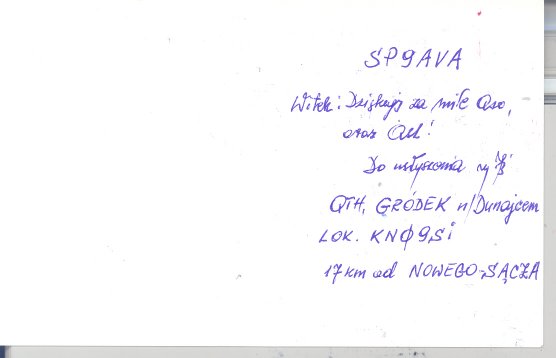 SP9AVA
Witek: Dziękuję za miłe Qso,
oraz Qsl!
Do usłyszenia vy 73
QTH. GRÓDEK n/Dunajcem
LOK. KNØ9SI
17 km od NOWEGO-SĄCZA